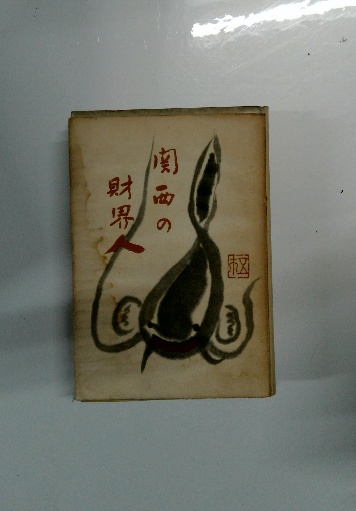 関西の
財界人